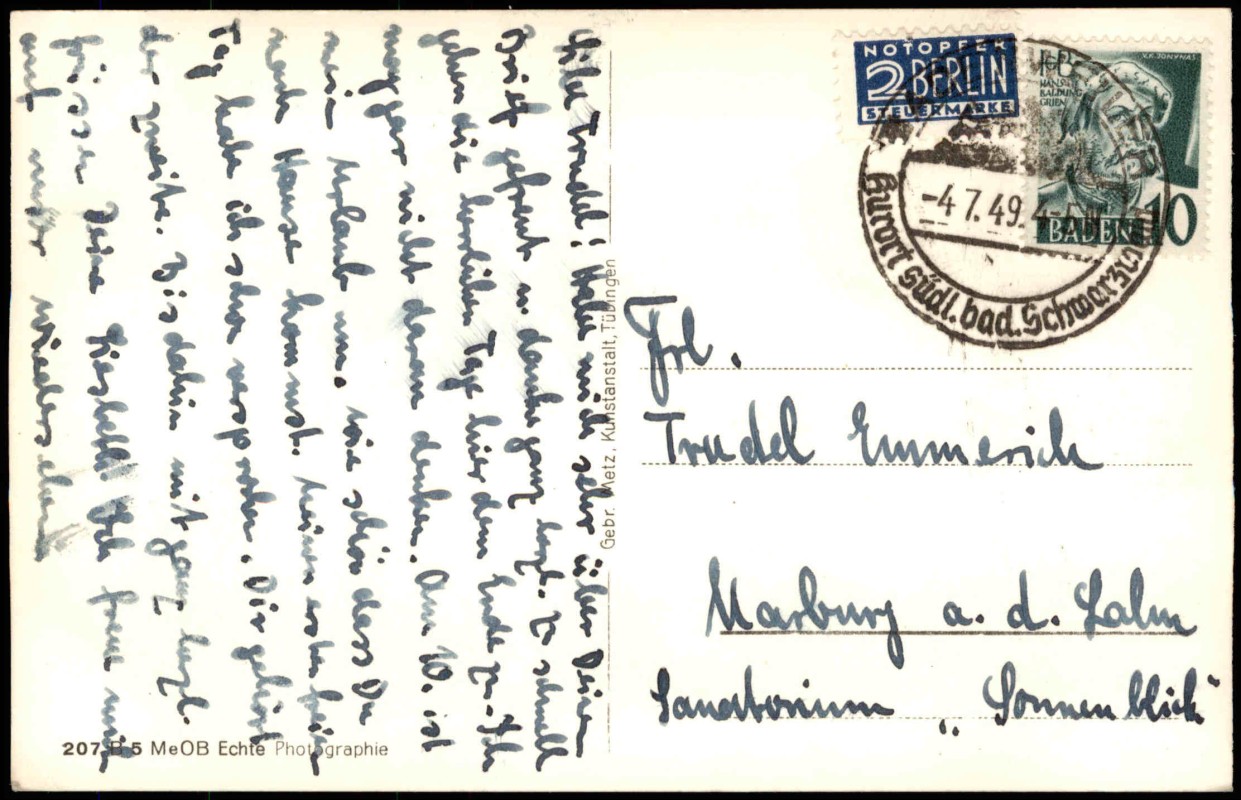 Liebe Trudel! Habe mich sehr über Deinen
Brief gefreut u. danke ganz herzl. So schnell
gehen die herrlichen Tage hier dem Ende zu. Ich
mag gar nicht daran denken. Am 10. ist
mein Urlaub um. Wie schön dass Du
nach Hause kommst. Meinen ersten freien
Tag habe ich schon versprochen. Dir gehört
der zweite. Bis dahin mit ganz herzl.
Grüssen Deine Liesbeth. Ich freue mich
auf unser Wiedersehen
Gebr. Metz, Kunstanstalt, Tübingen
207 B 5 MeOB Echte Photographie
NOTOPFER
2 BERLIN
STEUERMARKE
HANS
BALDUNG
GRIEN
V.K.JONYNAS
BADEN 10
-4.7.49.4-
Kurort südl. bad. Schwarzwald
Frl.
Trudel Emmerich
Marburg a. d. Lahn
Sanatorium „Sonnenblick"